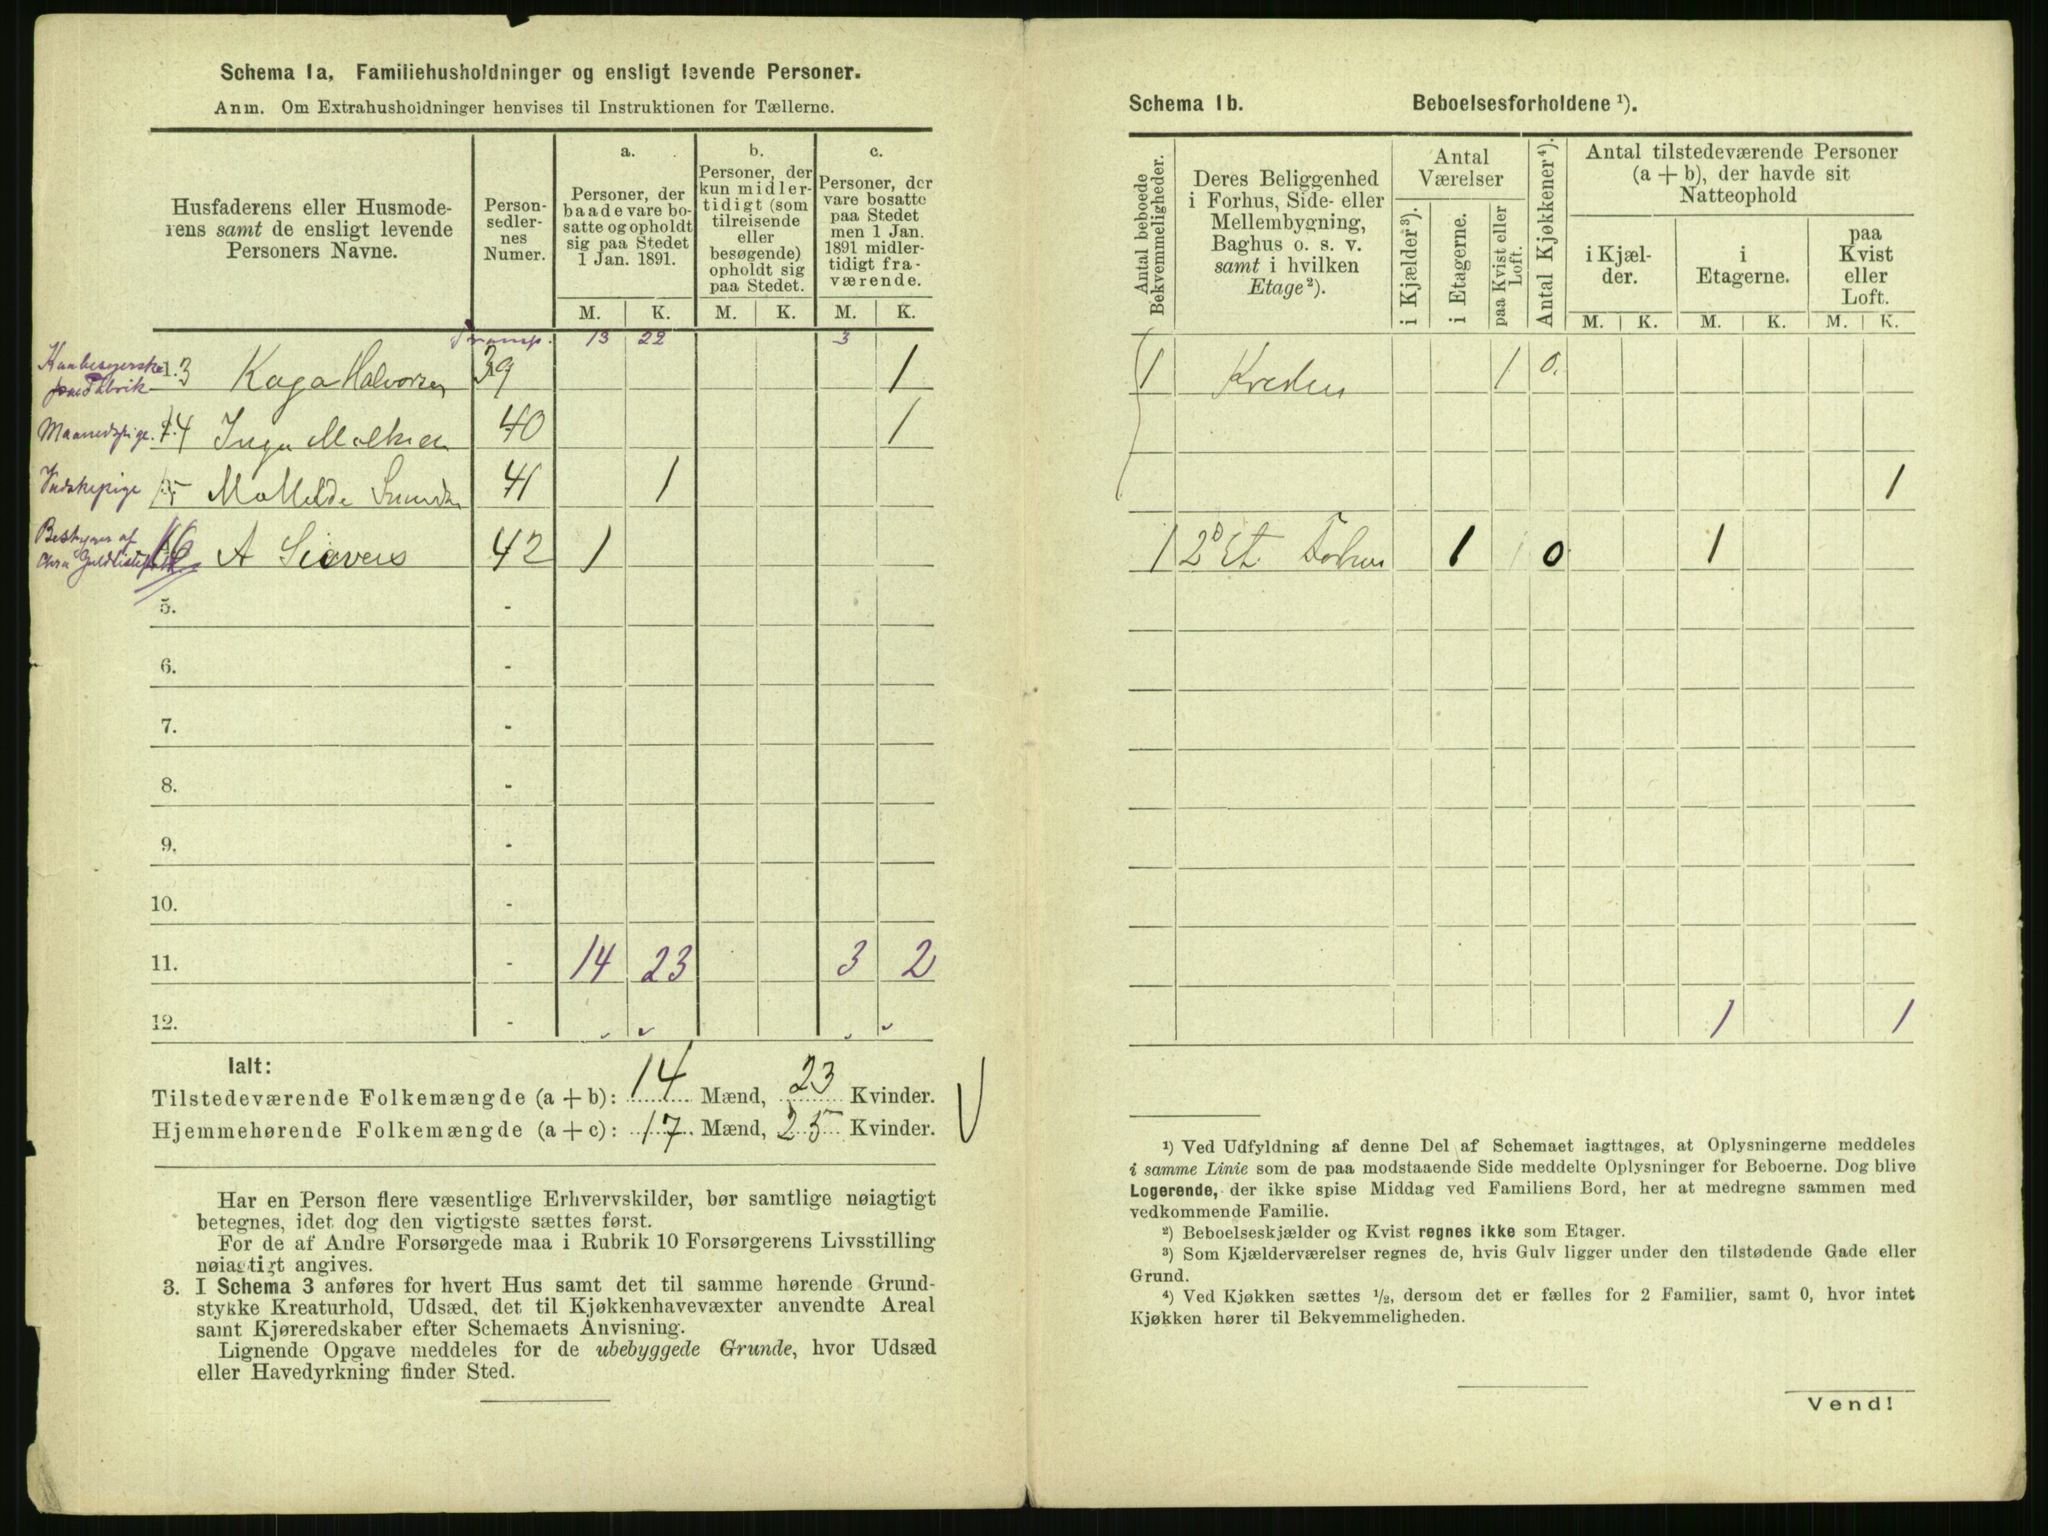 Schema 1a, Familiehusholdninger og ensligt levende Personer.
Anm. Om Extrahusholdninger henvises til Instruktionen for Tællerne.
Husfaderens eller Husmode-
rens samt de ensligt levende
Personers Navne.
Person-
sedler-
nes
Numer.
a.
Personer, der
baade vare bo-
satte og opholdt
sig paa Stedet
1 Jan. 1891.
b.
Personer, der
kun midler-
tidigt (som
tilreisende
eller
besøgende)
opholdt sig
paa Stedet.
c.
Personer, der
vare bosatte
paa Stedet
men 1 Jan.
1891 midler-
tidigt fra-
værende.
M. K. M. K. M. K.
Transp. 13 22 3
13 Kaga Halvorsen 39 1
Maanedspige. 14 Inga 40 1
15 Mathilde 41 1
Bestyrer af
16 A Sievers 42 1
5. -
6. -
7. -
8. -
9. -
10. -
11. - 14 23 3 2
12. -
Ialt:
Tilstedeværende Folkemængde (a + b): 14 Mænd, 23 Kvinder.
Hjemmehørende Folkemængde (a + c): 17 Mænd, 25 Kvinder.
Har en Person flere væsentlige Erhvervskilder, bør samtlige nøiagtigt
betegnes, idet dog den vigtigste sættes først.
For de af Andre Forsørgede maa i Rubrik 10 Forsørgerens Livsstilling
nøiagtigt angives.
3. I Schema 3 anføres for hvert Hus samt det til samme hørende Grund-
stykke Kreaturhold, Udsæd, det til Kjøkkenhavevæxter anvendte Areal
samt Kjøreredskaber efter Schemaets Anvisning.
Lignende Opgave meddeles for de ubebyggede Grunde, hvor Udsæd
eller Havedyrkning finder Sted.
Schema 1b. Beboelsesforholdene ¹).
Antal beboede
Bekvemmeligheder.
Deres Beliggenhed
i Forhus, Side- eller
Mellembygning,
Baghus o. s. v.
samt i hvilken
Etage ²).
Antal
Værelser
i Kjælder ³).
i Etagerne.
paa Kvist eller
Loft.
Antal Kjøkkener ⁴).
Antal tilstedeværende Personer
(a + b), der havde sit
Natteophold
i Kjæl-
der.
i
Etagerne.
paa
Kvist
eller
Loft.
M. K. M. K. M. K.
1 1 0.
1
1 2 Et. Forhus 1 0 1
1 1
¹) Ved Udfyldning af denne Del af Schemaet iagttages, at Oplysningerne meddeles
i samme Linie som de paa modstaaende Side meddelte Oplysninger for Beboerne. Dog blive
Logerende, der ikke spise Middag ved Familiens Bord, her at medregne sammen med
vedkommende Familie.
²) Beboelseskjælder og Kvist regnes ikke som Etager.
³) Som Kjælderværelser regnes de, hvis Gulv ligger under den tilstødende Gade eller
Grund.
⁴) Ved Kjøkken sættes ½, dersom det er fælles for 2 Familier, samt 0, hvor intet
Kjøkken hører til Bekvemmeligheden.
Vend!